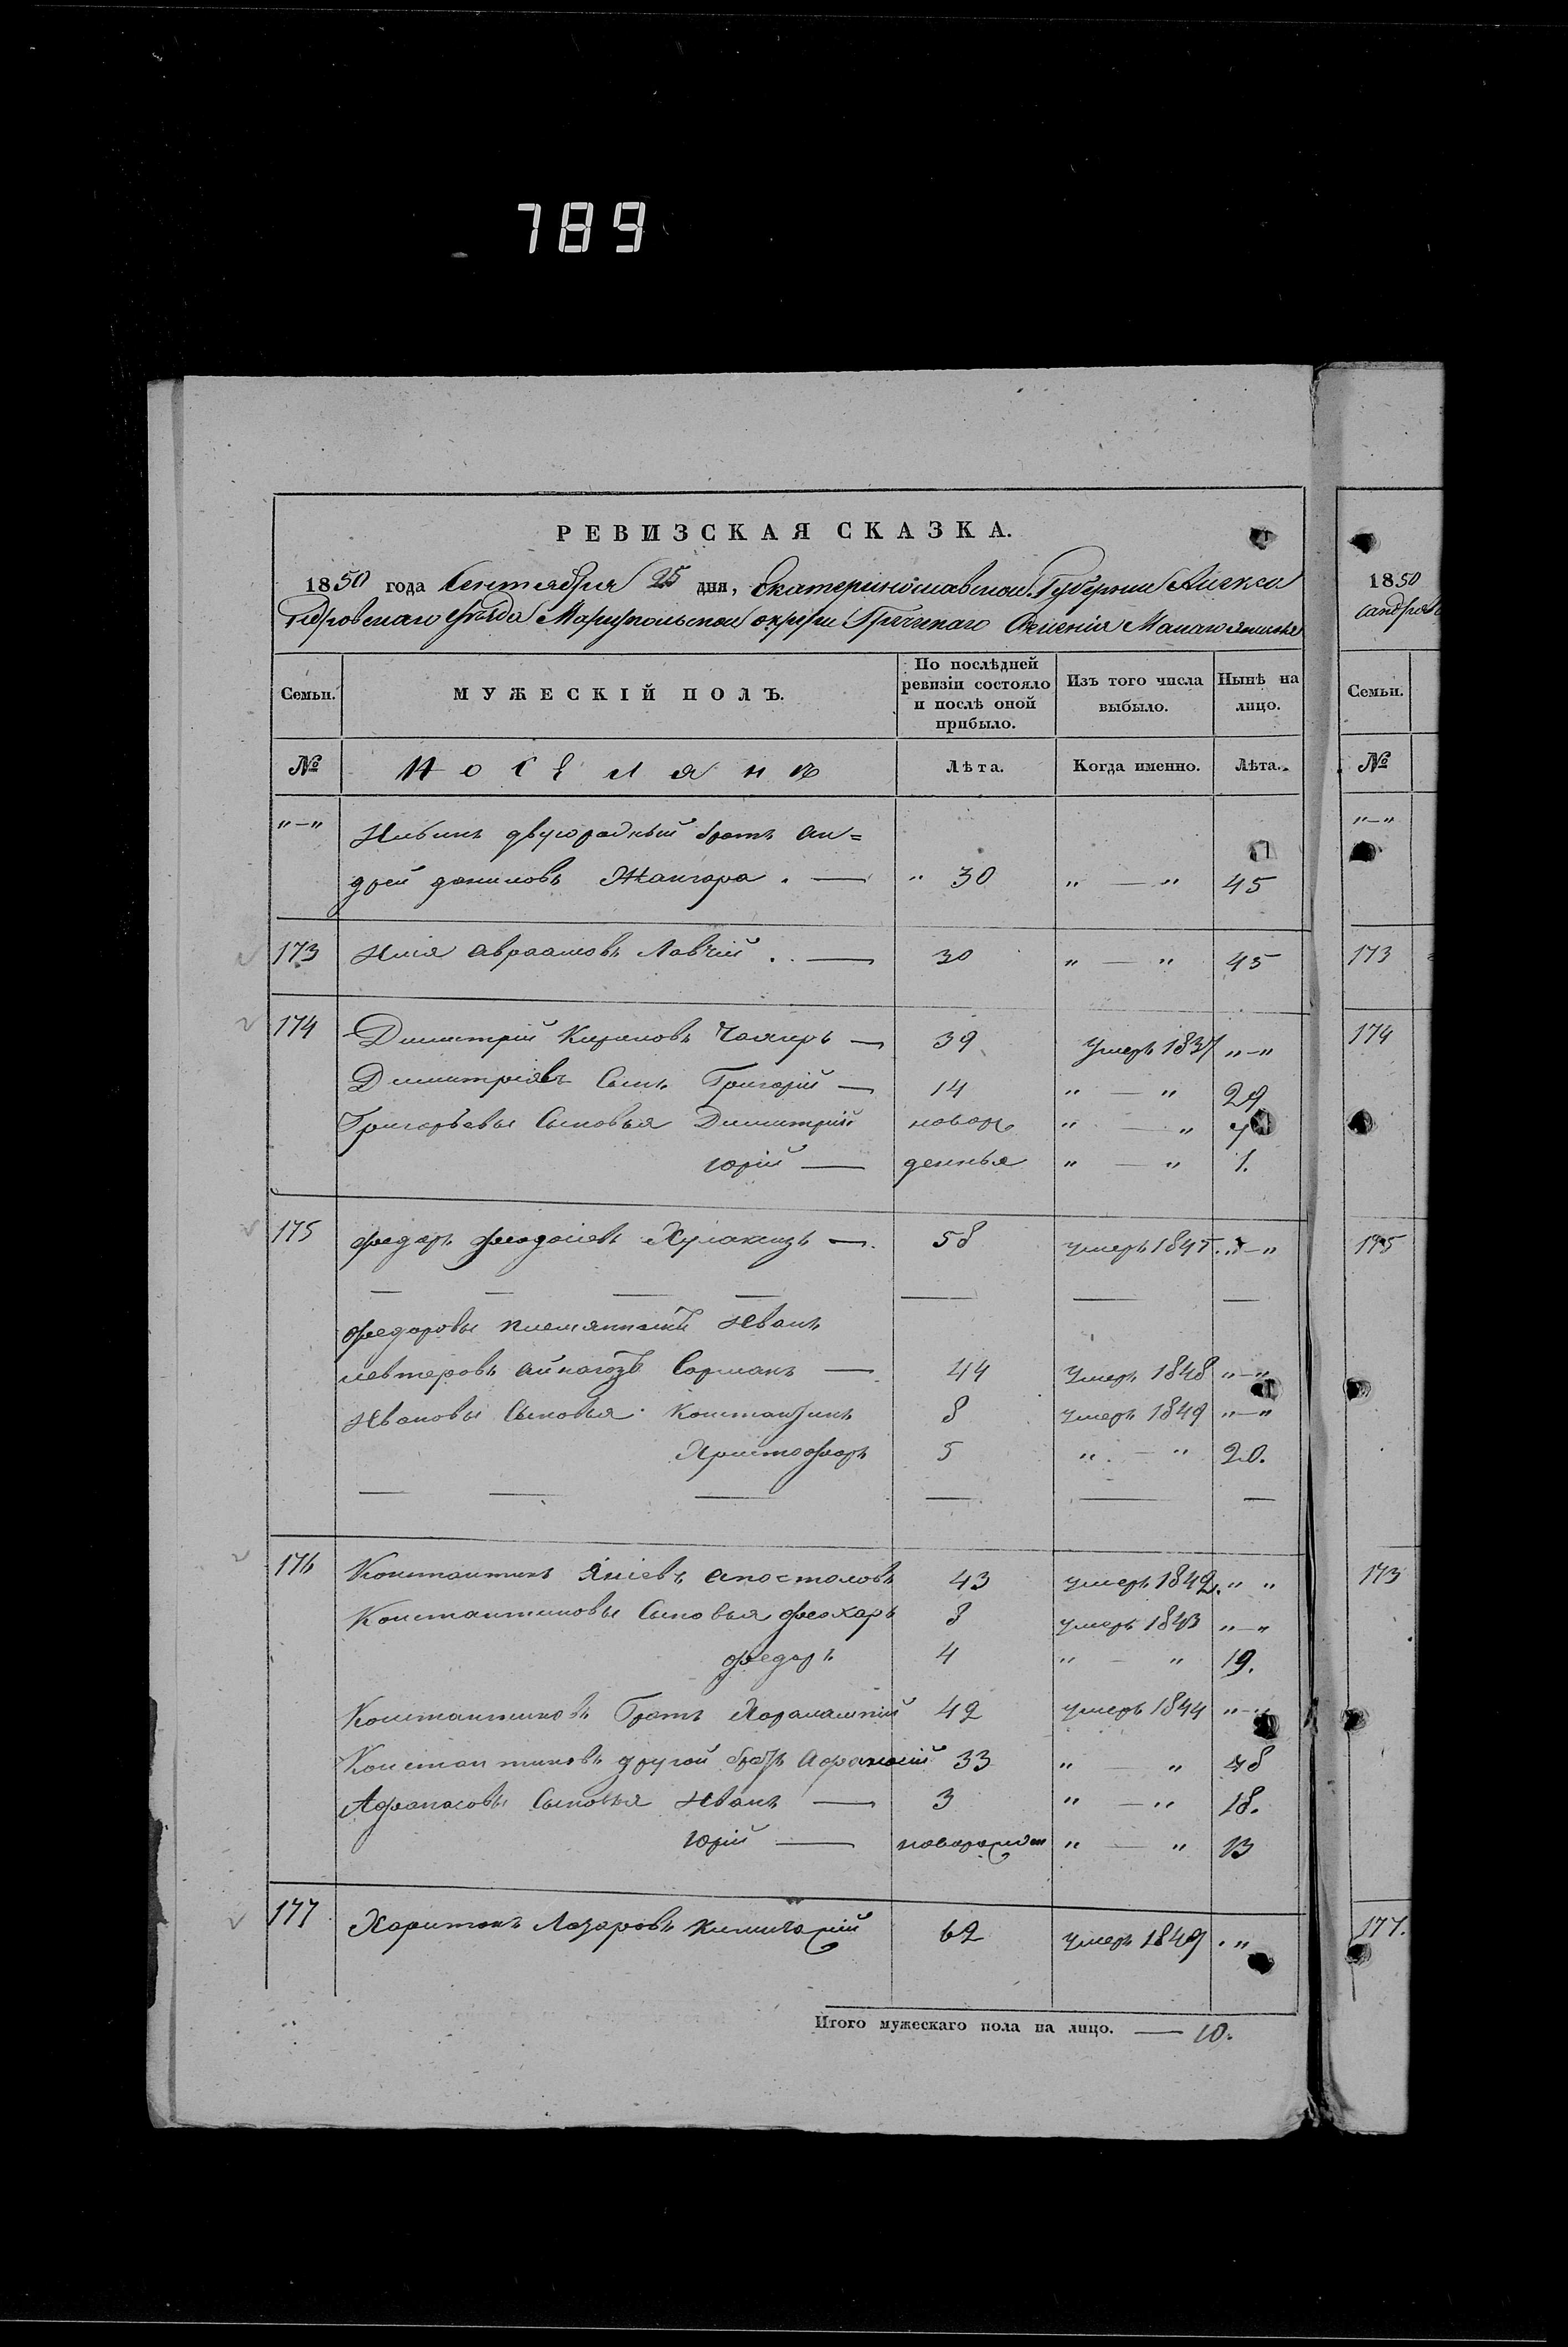 789
РЕВИЗСКАЯ СКАЗКА.
1850 года Сентября 25 дня, Екатеринославской Губернии Алекса
ндровскаго уѣзда Мариупольской округи Греческаго Селенія
Семьи. МУЖЕСКІЙ ПОЛЪ. По послѣдней ревизіи состояло и послѣ оной прибыло. Изъ того числа выбыло. Нынѣ на лицо.
№ Поселянъ Лѣта. Когда именно. Лѣта.
"—" двуюродный братъ Ан=
дрей Даниловъ Жангара . — " 30 " — " 45
173 Илія Авраамовъ Лавчій . — 30 " — " 45
174 Димитрій Кириковъ — 39 Умеръ 1837 "—"
Димитріевъ Сынъ Григорій — 14 " — " 29
Григорьевы Сыновья Димитрій новоро " — " 7
Юрій — денныя " — " 1.
175 Федоръ Феодосіевъ — 58 умеръ 1845 "—"
Федоровы племянники Иванъ
Левтеровъ Сарманъ — 44 Умеръ 1848 "—"
Ивановы Сыновья Константинъ 8 умеръ 1849 "—"
Христофоръ 5 " — " 20.
176 Константинъ Апостоловъ 43 умеръ 1849 " "
Константиновы Сыновья Феохаръ 8 умеръ 1843 "—"
Федоръ 4 " — " 19.
Константиновъ Братъ Харалампій 42 умеръ 1844 "—"
Константиновъ другой братъ Афанасій 33 " — " 48
Афанасовы Сыновья Иванъ — 3 " — " 18.
Юрій — новорожден " — " 13
177 Харитонъ Лазаровъ 62 умеръ 1849 . "
Итого мужескаго пола на лицо. — 10.
1850
Семьи.
№
"—"
173
174
175
173
177.